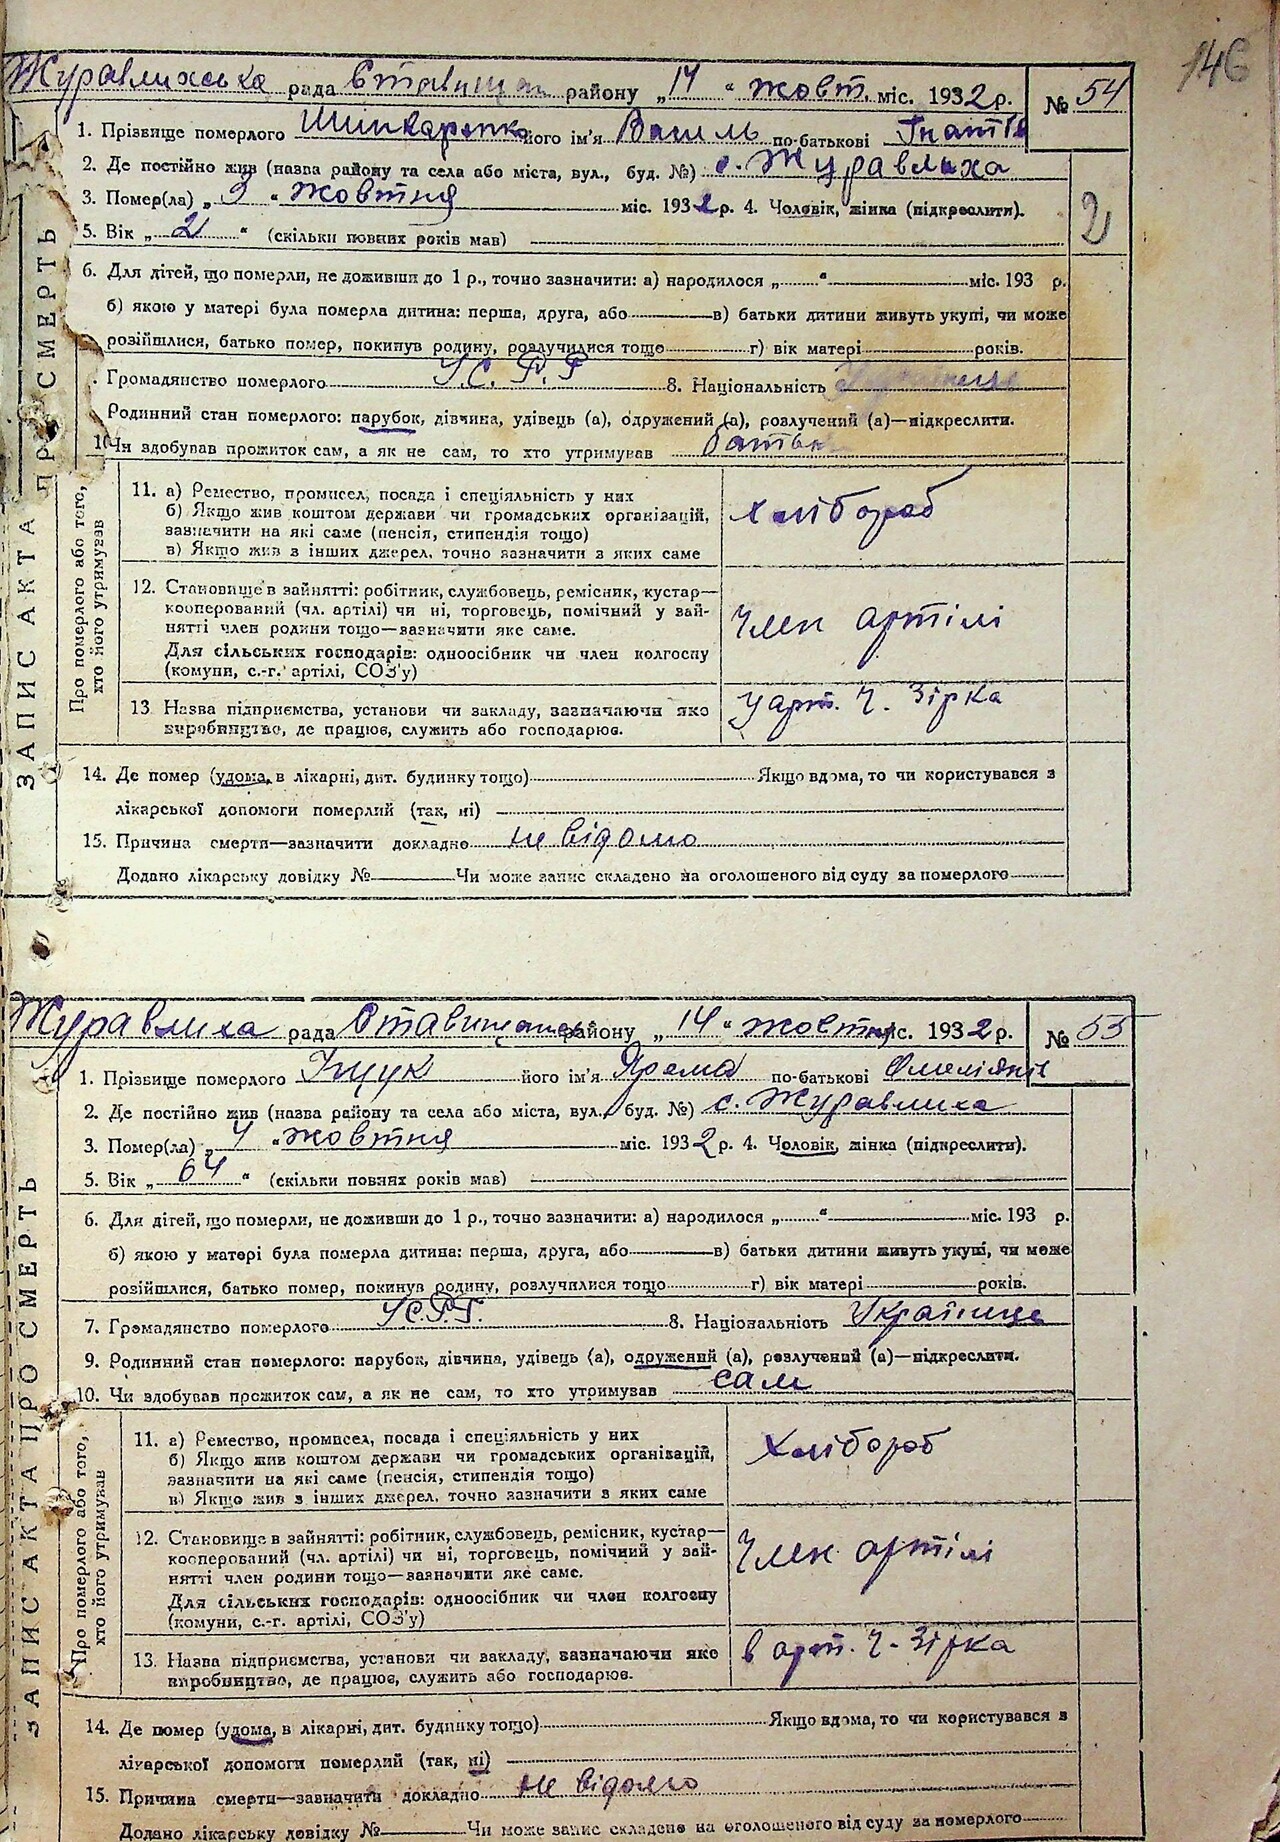 146
Журавлиська рада Ставищан району „14“ жовт. міс. 1932 р. № 54
1. Прізвище померлого Шинкаренко його ім'я Василь по-батькові Гнатів
2. Де постійно жив (назва району та села або міста, вул., буд. №) с. Журавлиха
3. Помер(ла) „3“ жовтня міс. 1932 р. 4. Чоловік, жінка (підкреслити).
2
5. Вік „2“ (скільки повних років мав)
6. Для дітей, що померли, не доживши до 1 р., точно зазначити: а) народилося „ “ міс. 193 р.
б) якою у матері була померла дитина: перша, друга, або в) батьки дитини живуть укупі, чи може
розійшлися, батько помер, покинув родину, розлучилися тощо г) вік матері років.
Громадянство померлого У.С.Р.Р 8. Національність Українець
Родинний стан померлого: парубок, дівчина, удівець (а), одружений (а), розлучений (а)—підкреслити.
10. Чи здобував прожиток сам, а як не сам, то хто утримував батьк
ЗАПИС АКТА ПРО СМЕРТЬ
Про померлого або того, хто його утримував
11. а) Ремество, промисел, посада і спеціяльність у них
б) Якщо жив коштом держави чи громадських організацій,
зазначити на які саме (пенсія, стипендія тощо)
в) Якщо жив з інших джерел, точно зазначити з яких саме
хлібороб
12. Становище в зайнятті: робітник, службовець, ремісник, кустар—
кооперований (чл. артілі) чи ні, торговець, помічний у зай-
нятті член родини тощо—зазначити яке саме.
Для сільських господарів: одноосібник чи член колгоспу
(комуни, с.-г. артілі, СОЗ'у)
Член артілі
13. Назва підприємства, установи чи закладу, зазначаючи яке
виробництво, де працює, служить або господарює.
У арт. Ч. Зірка
14. Де помер (удома, в лікарні, дит. будинку тощо) Якщо вдома, то чи користувався з
лікарської допомоги померлий (так, ні)
15. Причина смерти—зазначити докладно не відомо
Додано лікарську довідку № Чи може запис складено на оголошеного від суду за померлого
Журавлиха рада Ставищан району „14“ жовтня міс. 1932 р. № 55
1. Прізвище померлого Іщук його ім'я Ярема по-батькові Омеліянів
2. Де постійно жив (назва району та села або міста, вул., буд. №) с. Журавлиха
3. Помер(ла) „4“ жовтня міс. 1932 р. 4. Чоловік, жінка (підкреслити).
5. Вік „64“ (скільки повних років мав)
6. Для дітей, що померли, не доживши до 1 р., точно зазначити: а) народилося „ “ міс. 193 р.
б) якою у матері була померла дитина: перша, друга, або в) батьки дитини живуть укупі, чи може
розійшлися, батько помер, покинув родину, розлучилися тощо г) вік матері років.
7. Громадянство померлого 8. Національність Українець
9. Родинний стан померлого: парубок, дівчина, удівець (а), одружений (а), розлучений (а)—підкреслити.
10. Чи здобував прожиток сам, а як не сам, то хто утримував сам
ЗАПИС АКТА ПРО СМЕРТЬ
Про померлого або того, хто його утримував
11. а) Ремество, промисел, посада і спеціяльність у них
б) Якщо жив коштом держави чи громадських організацій,
зазначити на які саме (пенсія, стипендія тощо)
в) Якщо жив з інших джерел, точно зазначити з яких саме
Хлібороб
12. Становище в зайнятті: робітник, службовець, ремісник, кустар—
кооперований (чл. артілі) чи ні, торговець, помічний у зай-
нятті член родини тощо—зазначити яке саме.
Для сільських господарів: одноосібник чи член колгоспу
(комуни, с.-г. артілі, СОЗ'у)
Член артілі
13. Назва підприємства, установи чи закладу, зазначаючи яке
виробництво, де працює, служить або господарює.
в арт. Ч. Зірка
14. Де помер (удома, в лікарні, дит. будинку тощо) Якщо вдома, то чи користувався з
лікарської допомоги померлий (так, ні)
15. Причина смерти—зазначити докладно не відомо
Додано лікарську довідку № Чи може запис складено на оголошеного від суду за померлого